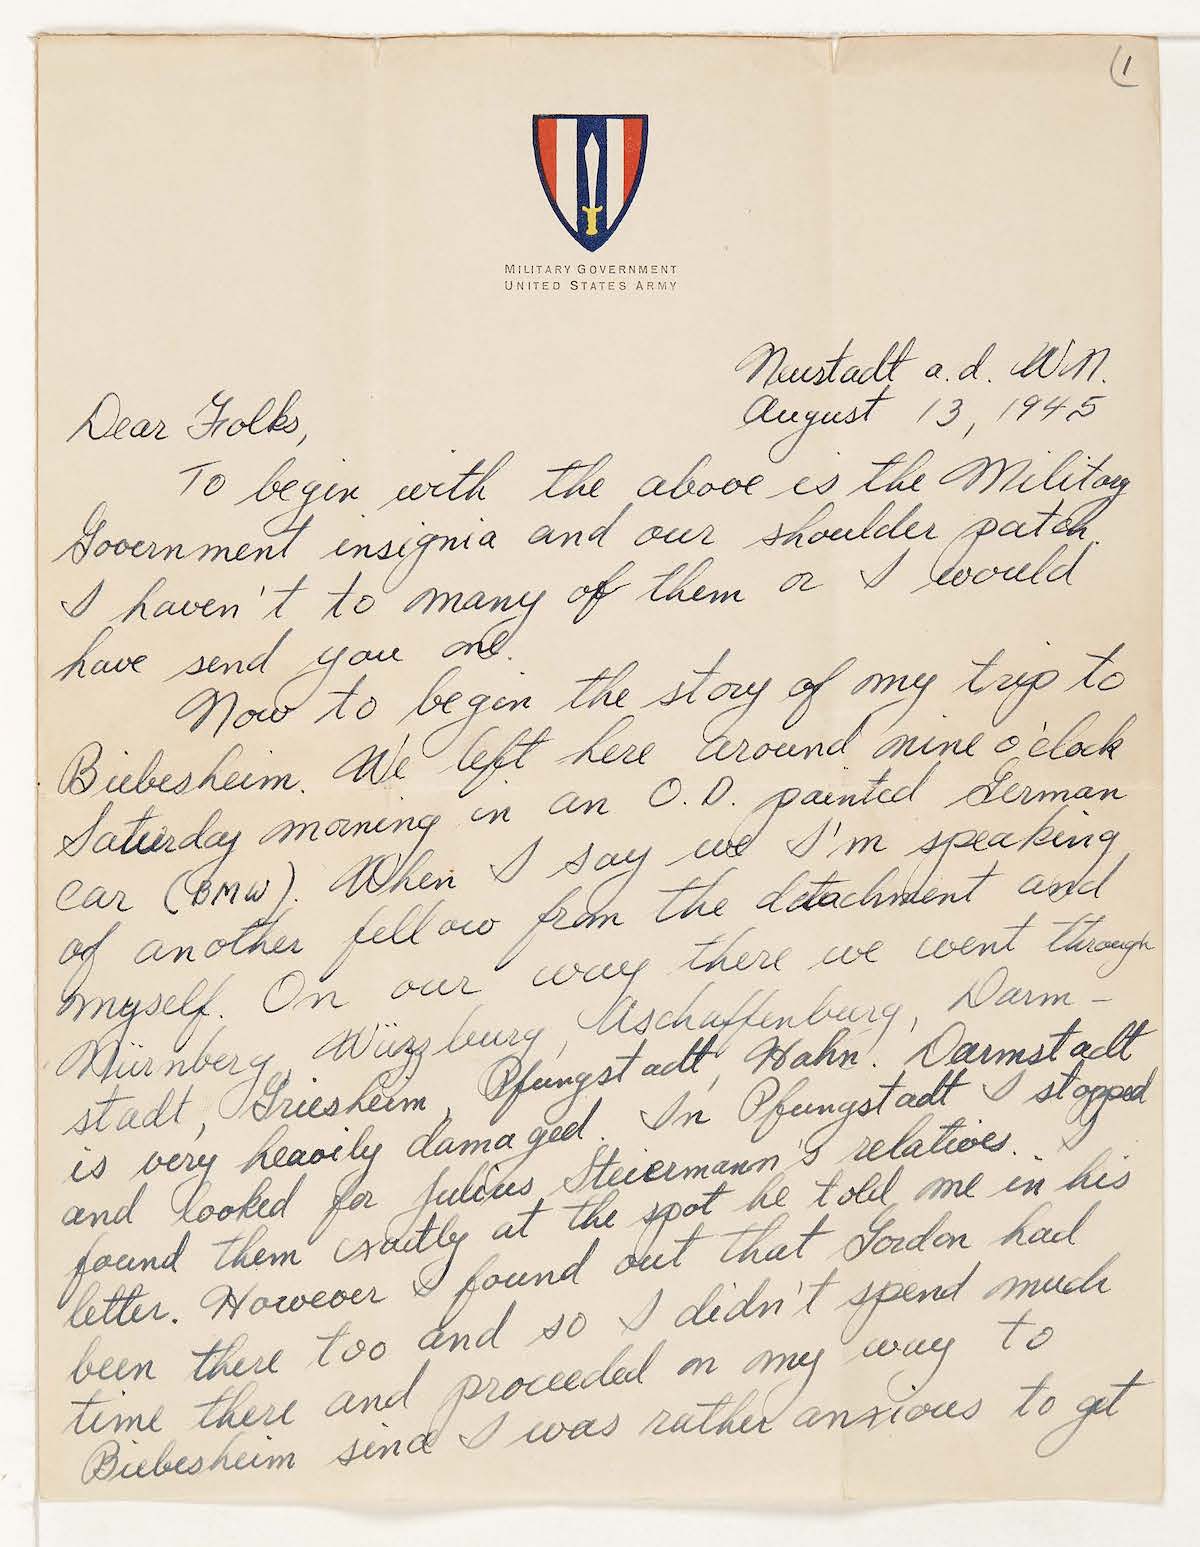 (1
MILITARY GOVERNMENT
UNITED STATES ARMY
Neustadt a.d. WN.
August 13, 1945
Dear Folks,
To begin with the above is the Military
Government insignia and our shoulder patch.
I haven't to many of them or I would
have send you one.
Now to begin the story of my trip to
Biebesheim. We left here around nine o'clock
Saturday morning in an O.D. painted German
car (BMW). When I say we I'm speaking
of another fellow from the detachment and
myself. On our way there we went through
Nürnberg, Würzburg, Aschaffenburg, Darm-
stadt, Griesheim, Pfungstadt, Hahn. Darmstadt
is very heavily damaged. In Pfungstadt I stopped
and looked for Julius Steiermann's relatives. I
found them exactly at the spot he told me in his
letter. However I found out that Gordon had
been there too and so I didn't spend much
time there and proceeded on my way to
Biebesheim since I was rather anxious to get